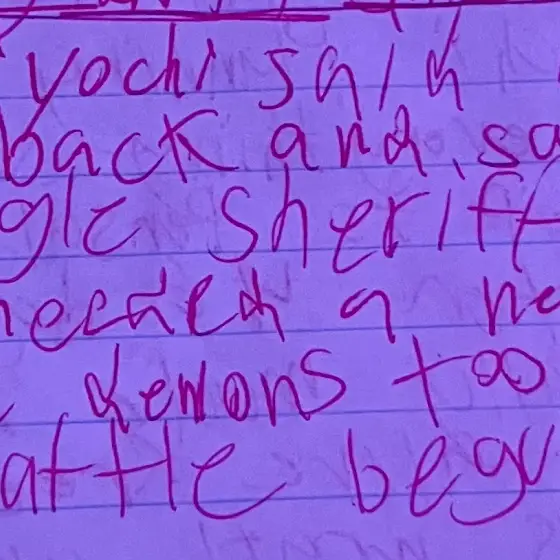 yochi said
back and sa
gle sheriff
needed a ne
demons too
attle begu